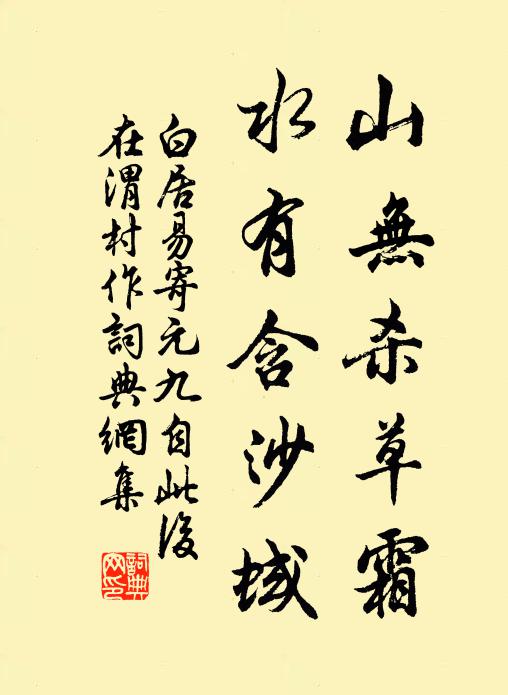 山無杀草霜
水有含沙域
白居易寄元九自此後
在渭村作詞典網集
詞典网印